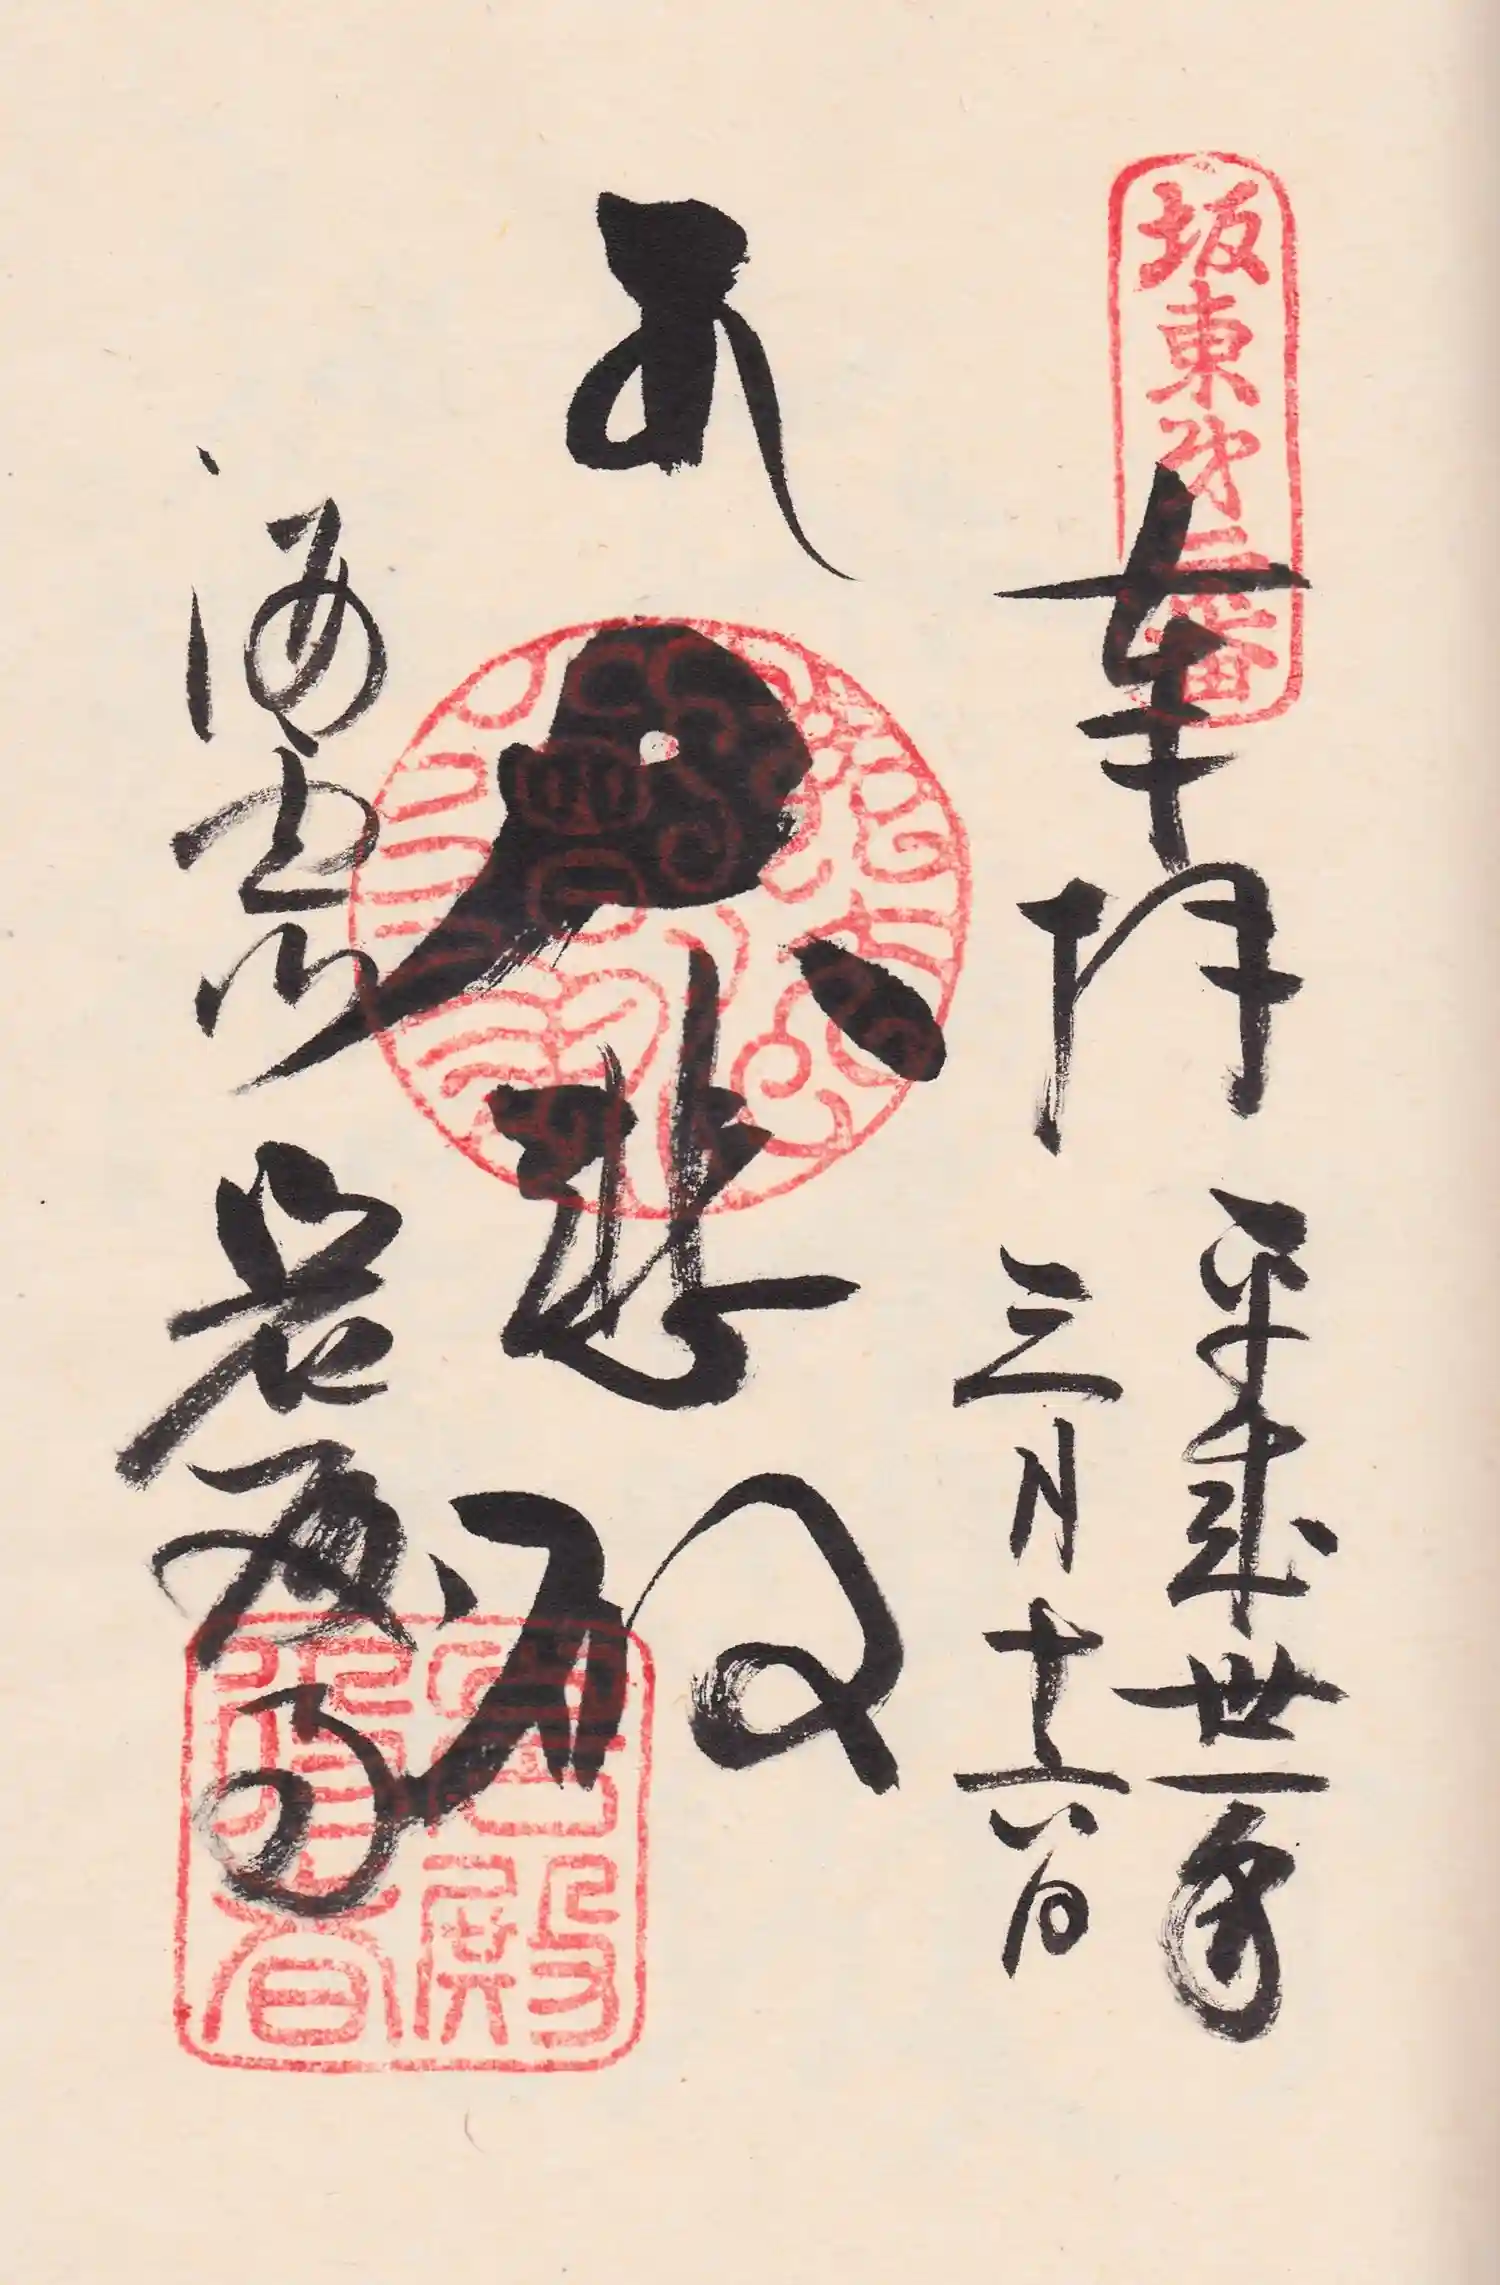 坂東第二番
奉拝
平成卅一年
三月十六日
大悲殿
海雲山
岩殿寺